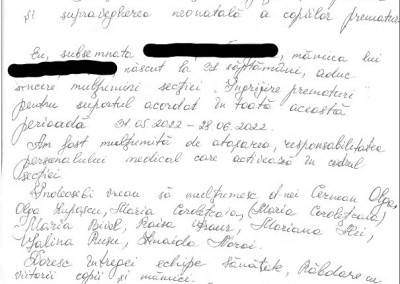 și supravegherea neonatală a copiilor prematuri
Eu, subsemnata , mămica lui
născut la 32 săptămâni, aduc
sincere mulțumiri secției "Îngrijire prematuri"
pentru suportul acordat în toată această
perioadă 31.05.2022 – 28.06.2022.
Am fost mulțumită de atașarea, responsabilitatea
personalului medical care activează în cadrul
secției
Îndeosebi vreau să mulțumesc d-nei Cerman Olga,
Olga Lupașcu, Maria Corolețcaia, (Maria Corolețcaia)
Maria Bivol, Raisa , Mariana Ilei,
Galina Rusu, Zinaida Noroi.
Doresc întregei echipe Sănătate, Răbdare cu
viitorii copii și mămici.